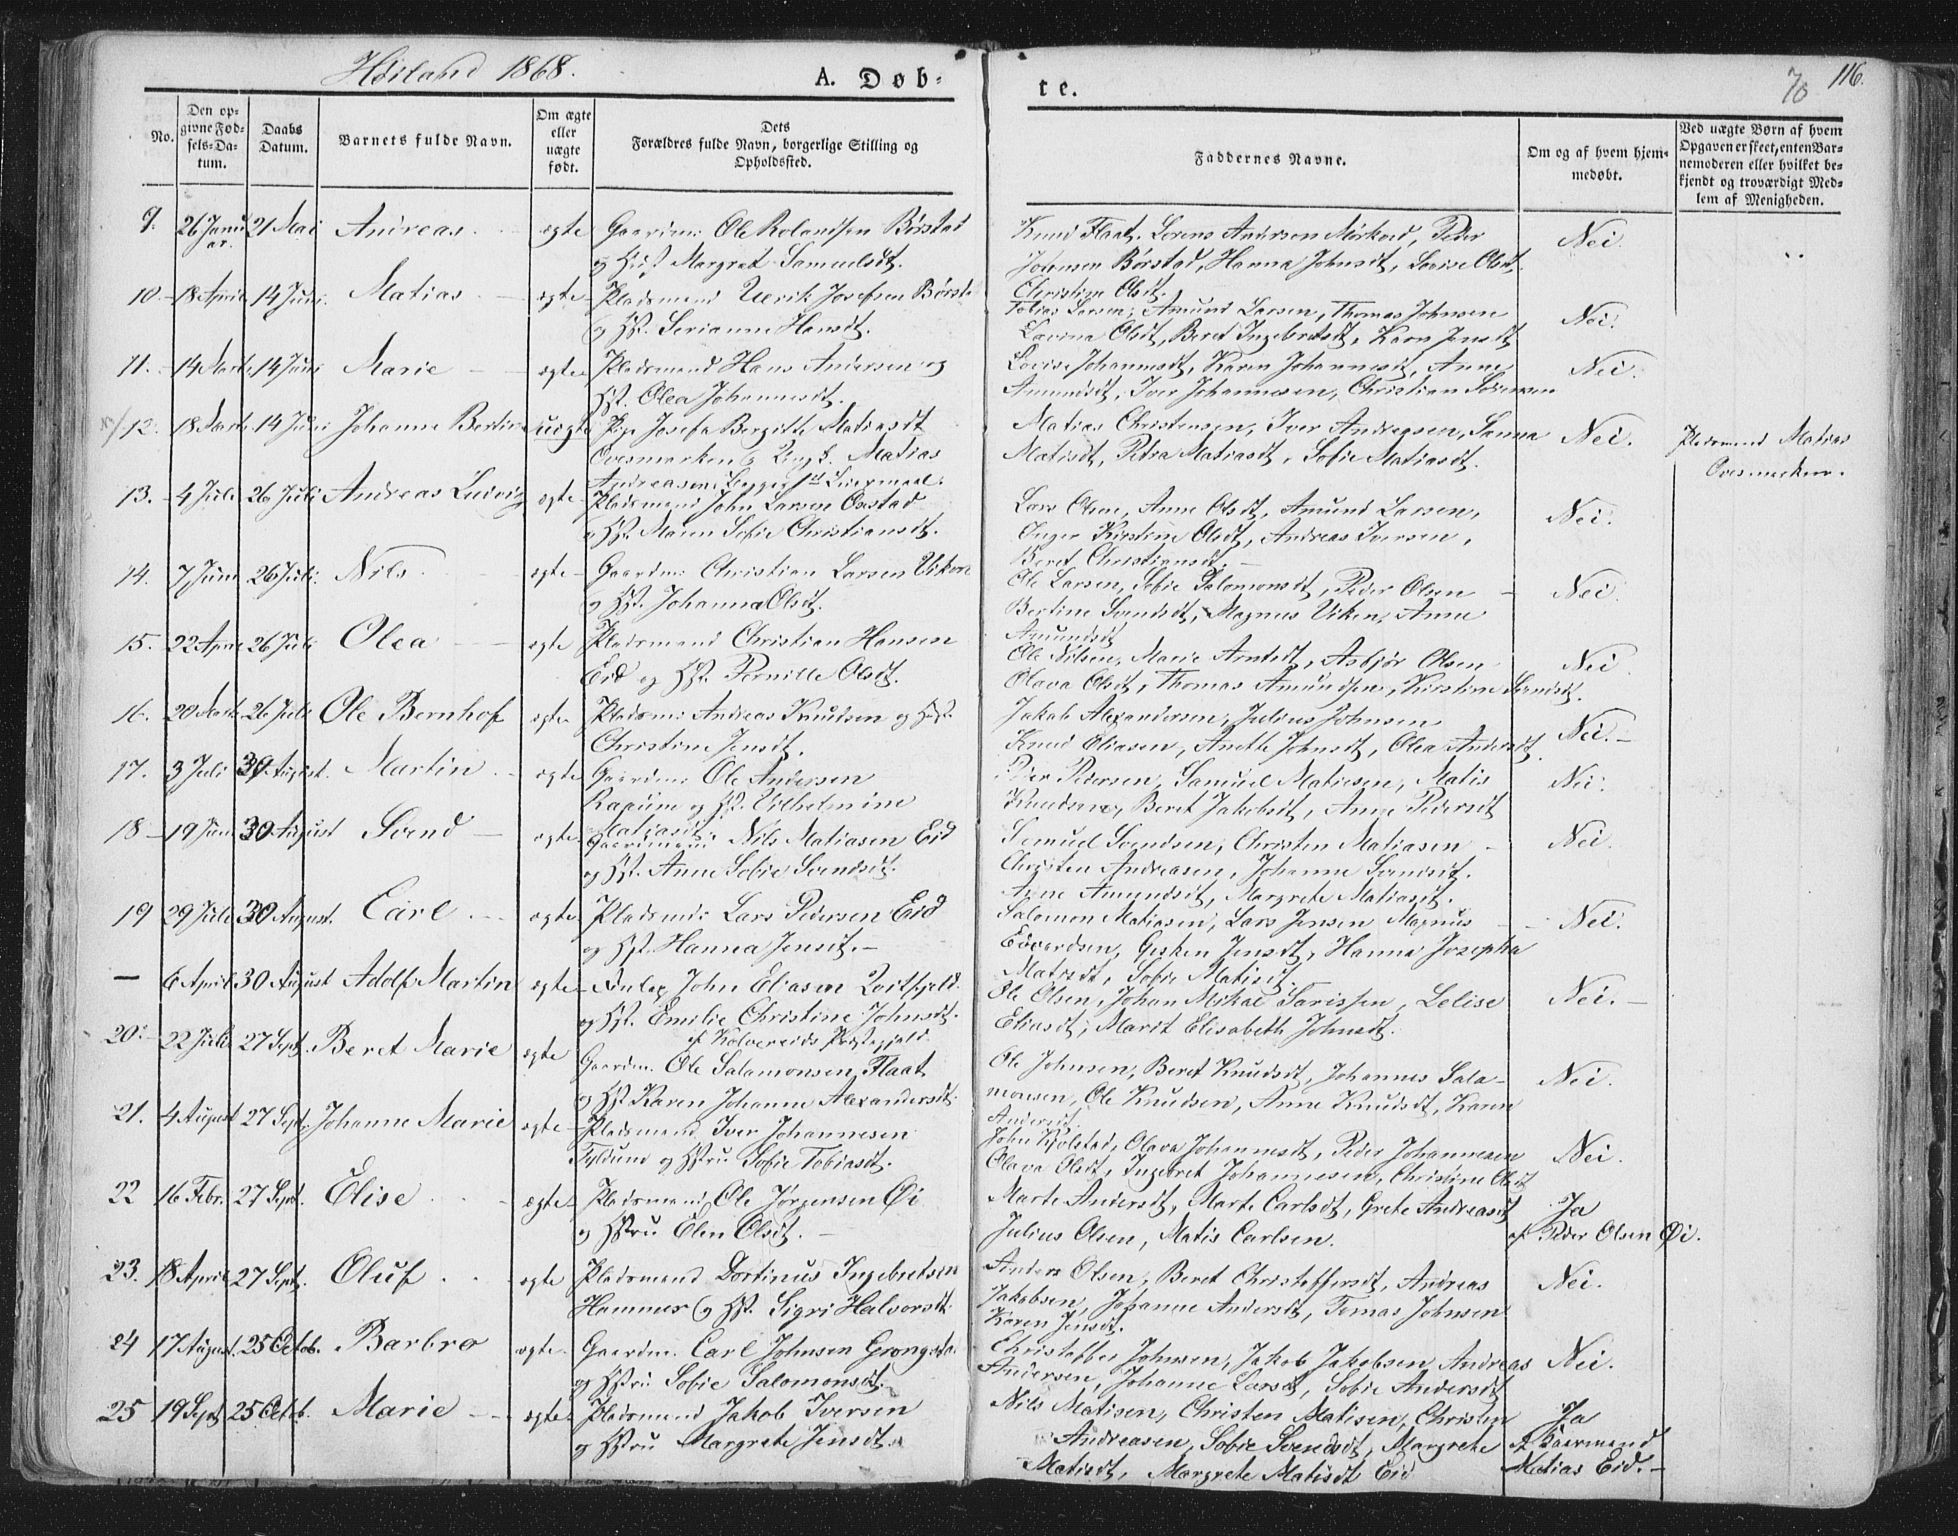 Høiland 1868.
A. Døb-
te.
70
116.
No.
Den op-
givne Fød-
sels-Da-
tum.
Daabs
Datum.
Barnets fulde Navn.
Om ægte
eller
uægte
født.
Dets
Forældres fulde Navn, borgerlige Stilling og
Opholdssted.
Faddernes Navne.
Om og af hvem hjem-
medøbt.
Ved uægte Børn af hvem
Opgaven er skeet, enten Bar-
nemoderen eller hvilket be-
kjendt og troværdigt Med-
lem af Menigheden.
9. 26 Janu 21 Mai Andreas ægte Gaardm: Ole Rolandsen Børstad
ar.
og Hust Margret Samuelsdt.
Knud Flaat, Lorens Andersen Mørkved, Peder
Johnsen Børstad, Hanna Johnsdt, Lovise Olsdt.
Christine Olsdt.
Nei
10 18 April 14 Juni Matias ægte Pladsmand Ulrik Josefsen Børst.
og Hst. Serianne Hansdt.
Tobias Larsen, Amund Larsen, Thomas Johnsen
Lovina Olsdt, Beret Ingebretsdt, Karn Jensdt
Nei.
11. 14 Marts 14 Juni Marie ægte Pladsmand Hans Andersen og
Hst. Olea Johannesdt.
Lovise Johannesdt, Karen Johannesdt, Anne
Amundsdt, Iver Johannesen, Christian Sørensen
Nei.
12. 18 Marts 14 Juni Johanne Bertine uægte Pige Josefa Bergitte Matiasdt
Ovesmarken og Ungk. Matias
Andreasen, Begges 1ste Leiermaal.
Matias Christensen, Iver Andreasen, Sanna
Matisdt, Petra Matiasdt, Sofie Matiasdt.
Nei. Pladsmand Matias
Ovesmarken.
13. 4 Juli 26 Juli Andreas Ludvig ægte Pladsmand John Larsen Oxstad
og Hst. Maren Sofie Christiansdt.
Lars Olsen, Anne Olsdt, Amund Larsen,
Inger Kirstine Olsdt, Andreas Iversen,
Beret Christiansdt.
Nei.
14. 7 Juni 26 Juli. Nils ægte Gaardm: Christian Larsen Viken
og Hst. Johanna Olsdt.
Ole Larsen, Sofie Salomonsdt, Peder Olsen
Bertine Svendsdt, Magnus Viken, Anne
Amundsdt
Nei
15. 22 April 26 Juli Olea ægte Pladsmand Christian Hansen
Eid og Hst. Pernille Olsdt.
Ole Nilsen, Marie Arntsdt, Asbjør Olsen
Olava Olsdt, Thomas Amundsen, Kirstine Svendsdt.
Nei
16. 20 Marts 26 Juli Ole Bernhof ægte Pladsm: Andreas Knudsen og Hst.
Christine Jensdt.
Jakob Alexandersen, Julius Johnsen
Knud Eliasen, Anette Johnsdt, Olea Andersdt.
Nei.
17. 3 Juli 30 August. Martin ægte Gaardm: Ole Andersen
og Hst. Vilhelmine
Matiasdt.
Peder Pedersen, Samuel Matiesen, Matis
Knudsen, Beret Jakobsdt, Anne Pedersdt
Nei.
18 19 Juni 30 August Svend ægte Gaardmand Nils Matiasen Eid
og Hst. Anne Sofie Svendsdt.
Semud Svendsen, Christen Matiasen
Christen Andreasen, Johanne Svendsdt.
Anne Amundsdt, Margrete Matiasdt.
Nei.
19 29 Juli 30 August. Carl ægte Pladsmd: Lars Pedersen Eid
og Hst. Hanna Jensdt.
Salomon Matiasen, Lars Jensen Magnus
Edvardsen, Gesken Jensdt, Hanna Josepha
Matisdt, Sofie Matisdt.
Nei.
— 6 April 30 August Adolf Martin ægte John Eliasen
og Hst. Emilie Christine Johnsdt.
af Kolvereids Præstegjeld.
Ole Olsen, Johan Mikal Tarissen, Lelise
Eliasdt, Marit Elisabeth Johnsdt.
Nei.
20. 22 Juli 27 Sept. Beret Marie ægte Gaardm. Ole Salamonsen Flaat
og Hst Karen Johanne Alexandersdt.
Ole Johnsen, Beret Knudsdt, Johannes Sala-
monsen, Ole Knudsen, Anne Knudsdt, Karen
Andersdt.
Nei.
21. 4 August 27 Sept. Johanne Marie ægte Pladsmand Iver Johannesen
Fylsund og Hstru Sofie Tobiasdt.
John Kjølstad, Olava Johannesdt, Peder Johannesen
Olava Olsdt, Ingebret Johannesen, Christine Olsdt
Nei.
22 16 Febr. 27 Sept. Elise ægte Pladsmand Ole Jørgensen Øi
og Hstru Elen Olsdt.
Marte Andersdt, Marte Carlsdt, Grete Andreasdt
Julius Olsen, Matis Carlsen.
Ja
af Peder Olsen Øi.
23. 18 April 27 Sept. Oluf ægte Pladsmand Dortinus Ingebretsen
Hammer og Hst. Sigri Halvorsdt.
Anders Olsen, Beret Christoffersdt, Andreas
Jakobsen, Johanne Andersdt, Tomas Johnsen
Karen Jensdt.
Nei.
24 17 August. 25 Octob. Barbro ægte Gaardm. Carl Johnsen Grongsta.
og Hstru Sofie Salomonsdt.
Christoffer Johnsen, Jakob Jakobsen, Andreas
Andersen, Johanne Larsdt, Sofie Andersdt
Nei.
25 19 Sept 25 Octob. Marie ægte Pladsmand Jakob Iversen
og Hstru Margrete Jensdt.
Nils Matisen, Christen Matisen, Christen
Andreasen, Sofie Svendsdt, Margrete
Matisdt, Margrete Matisdt Eid
Ja
af Gaarmand
Matias Eid.